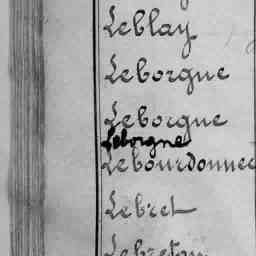 Leblay
Leborgne
Leborgne
Leborgne
Lebourdonnec
Lebret
Lebreton